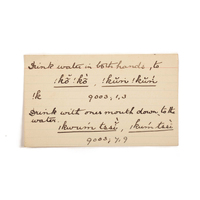 Drink water in both hands, to
!kõ !kõ, !kũm !kũm
!k 9003,1,3
Drink with ones mouth down to the
water
!kwum tssì, !kum tssì
9003, 7, 9